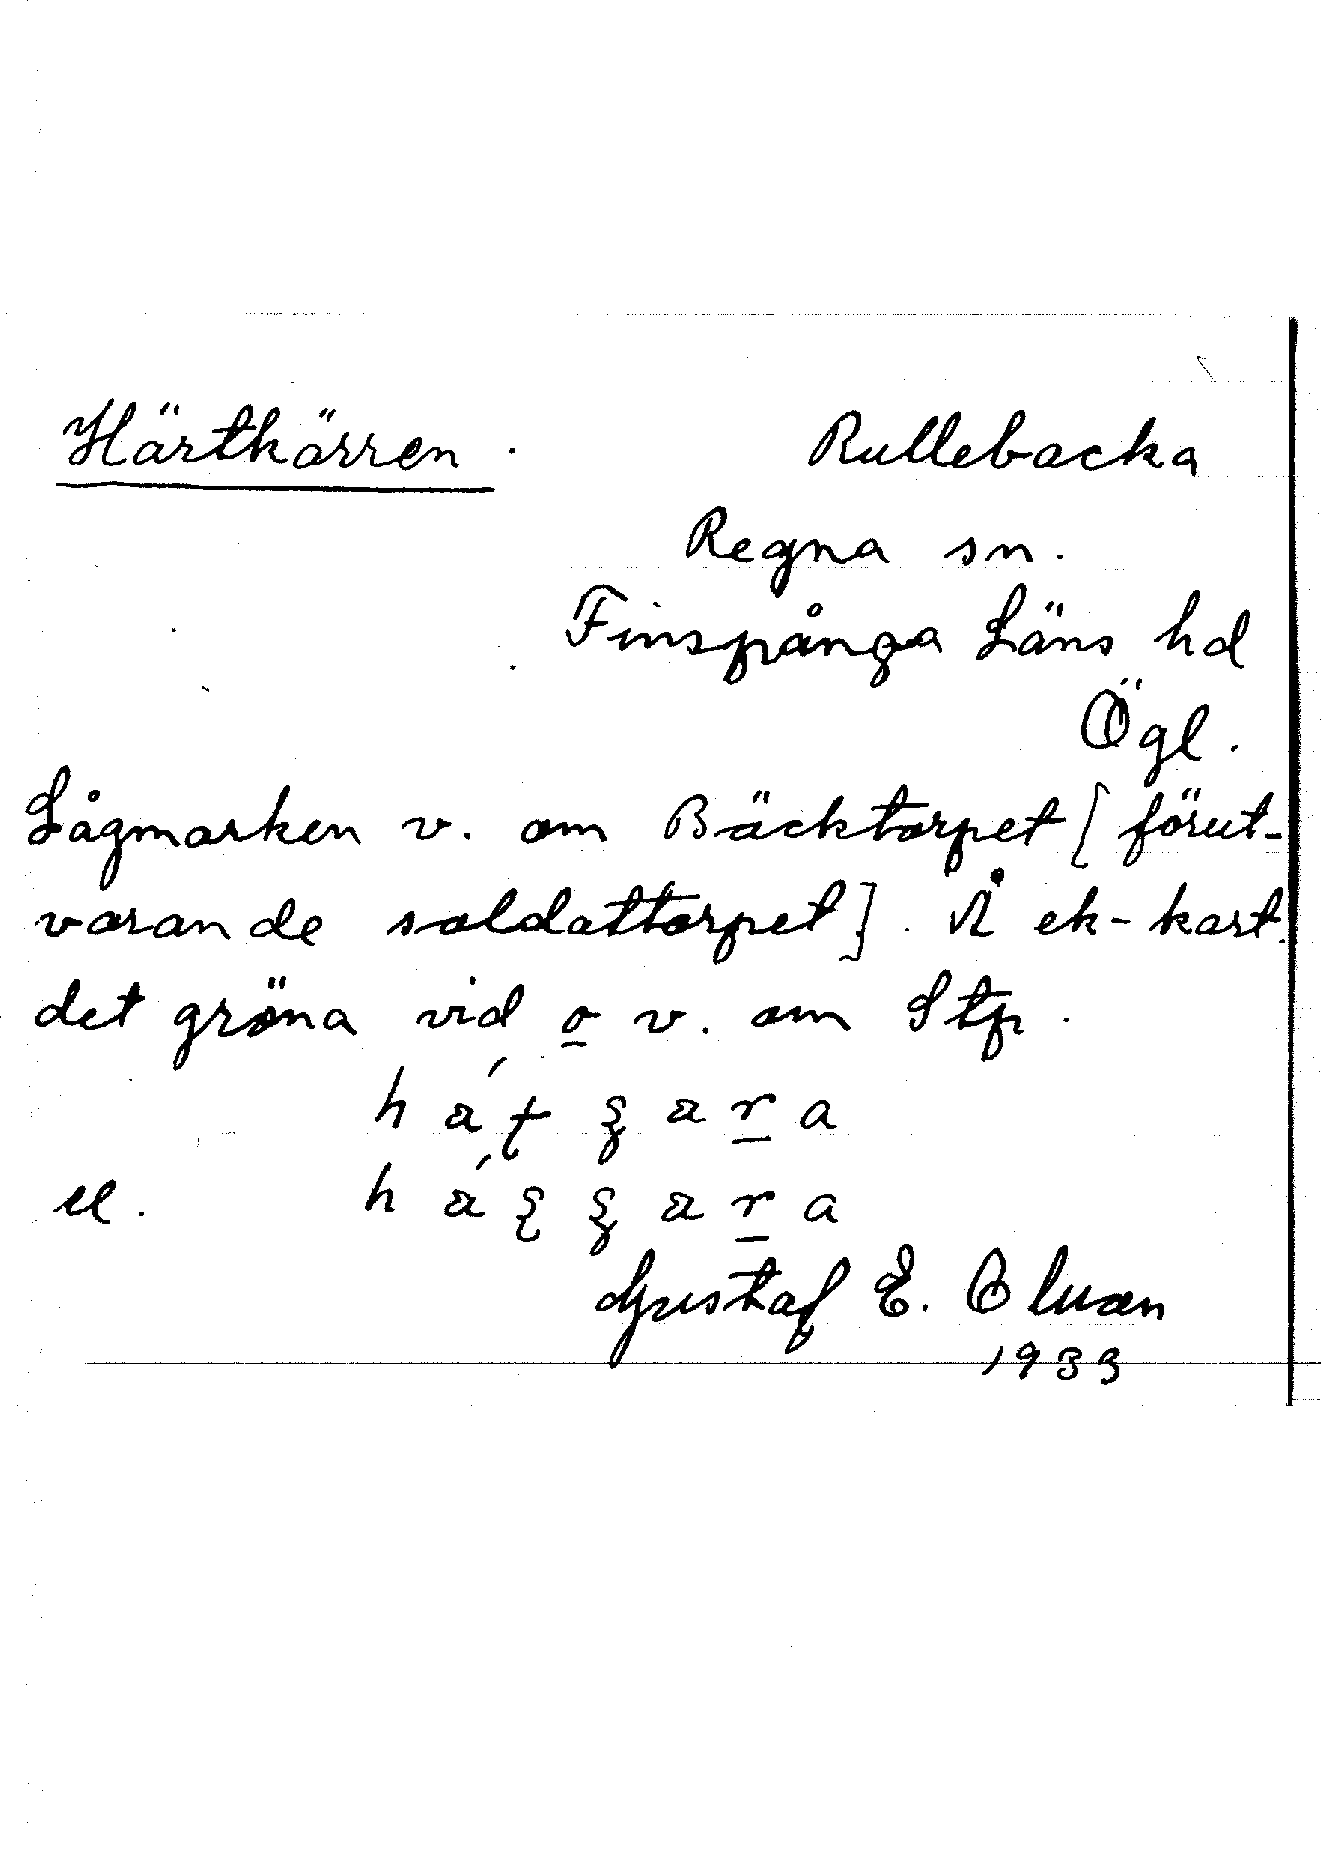 Härtkärren. Rullebacka
Regna sn.
Finspånga Läns hd
Ögl.
Lågmarken v. om Bäcktorpet [förut-
varande soldattorpet]. Å ek-kart.
det gröna vid o v. om Stp.
el.
Gustaf E. Olusen
1933